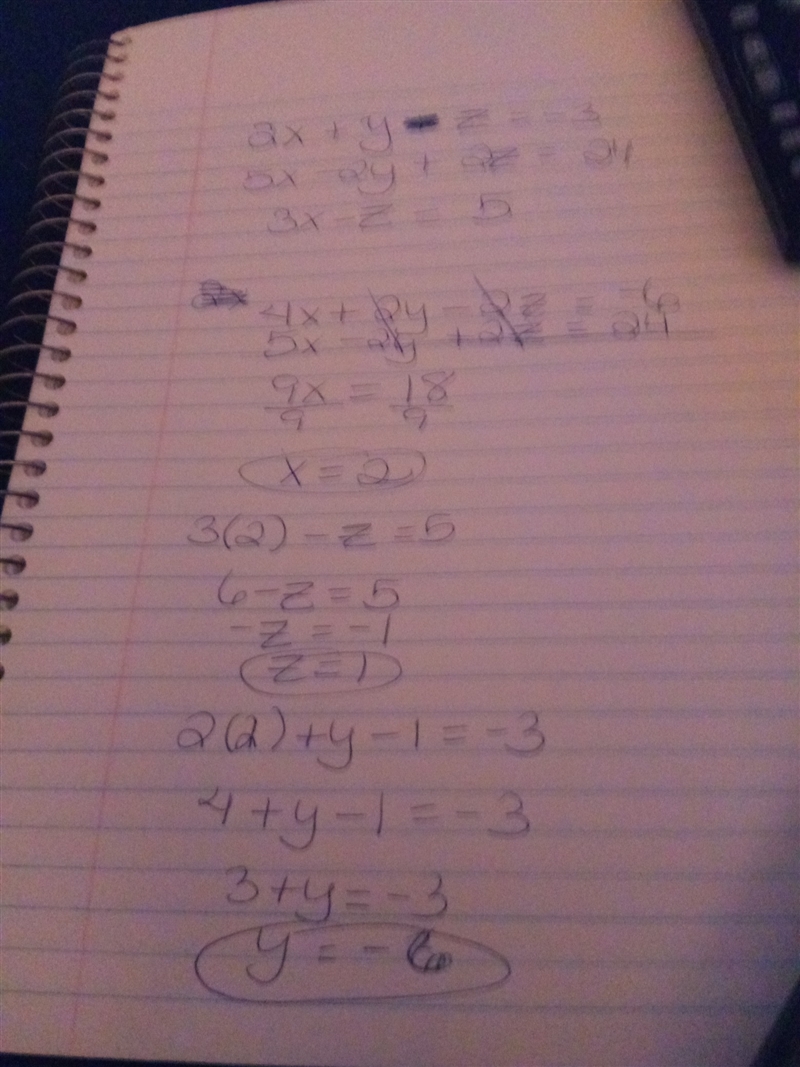 2x + y - z = -3
5x - 2y + 2z = 24
3x - z = 5
4x + 2y - 2z = -6
5x - 2y + 2z = 24
9x = 18
9 9
x = 2
3(2) - z = 5
6 - z = 5
-z = -1
z = 1
2(2) + y - 1 = -3
4 + y - 1 = -3
3 + y = -3
y = -6